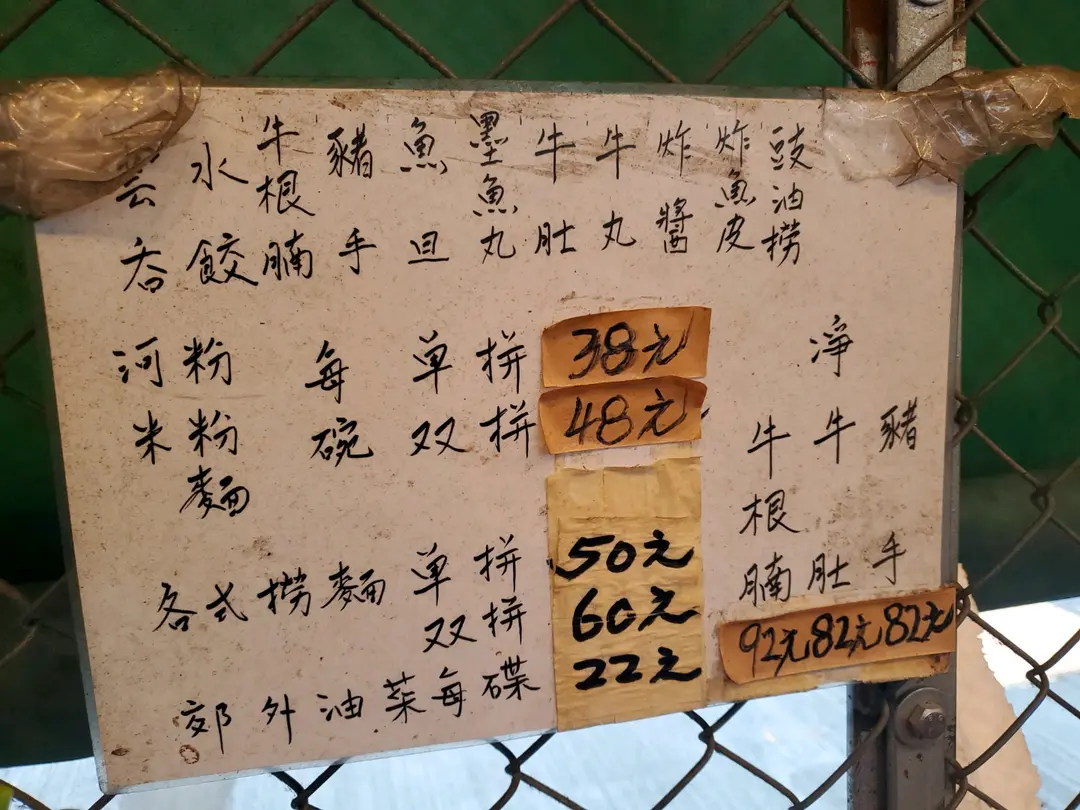 云吞
水餃
牛根腩
豬手
魚旦
墨魚丸
牛肚
牛丸
炸醬
炸魚皮
豉油撈
河粉
米粉
麵
每碗
单拼 38元
双拼 48元
各式撈麵 单拼 50元
双拼 60元
郊外油菜每碟 22元
淨
牛根腩 92元
牛肚 82元
豬手 82元